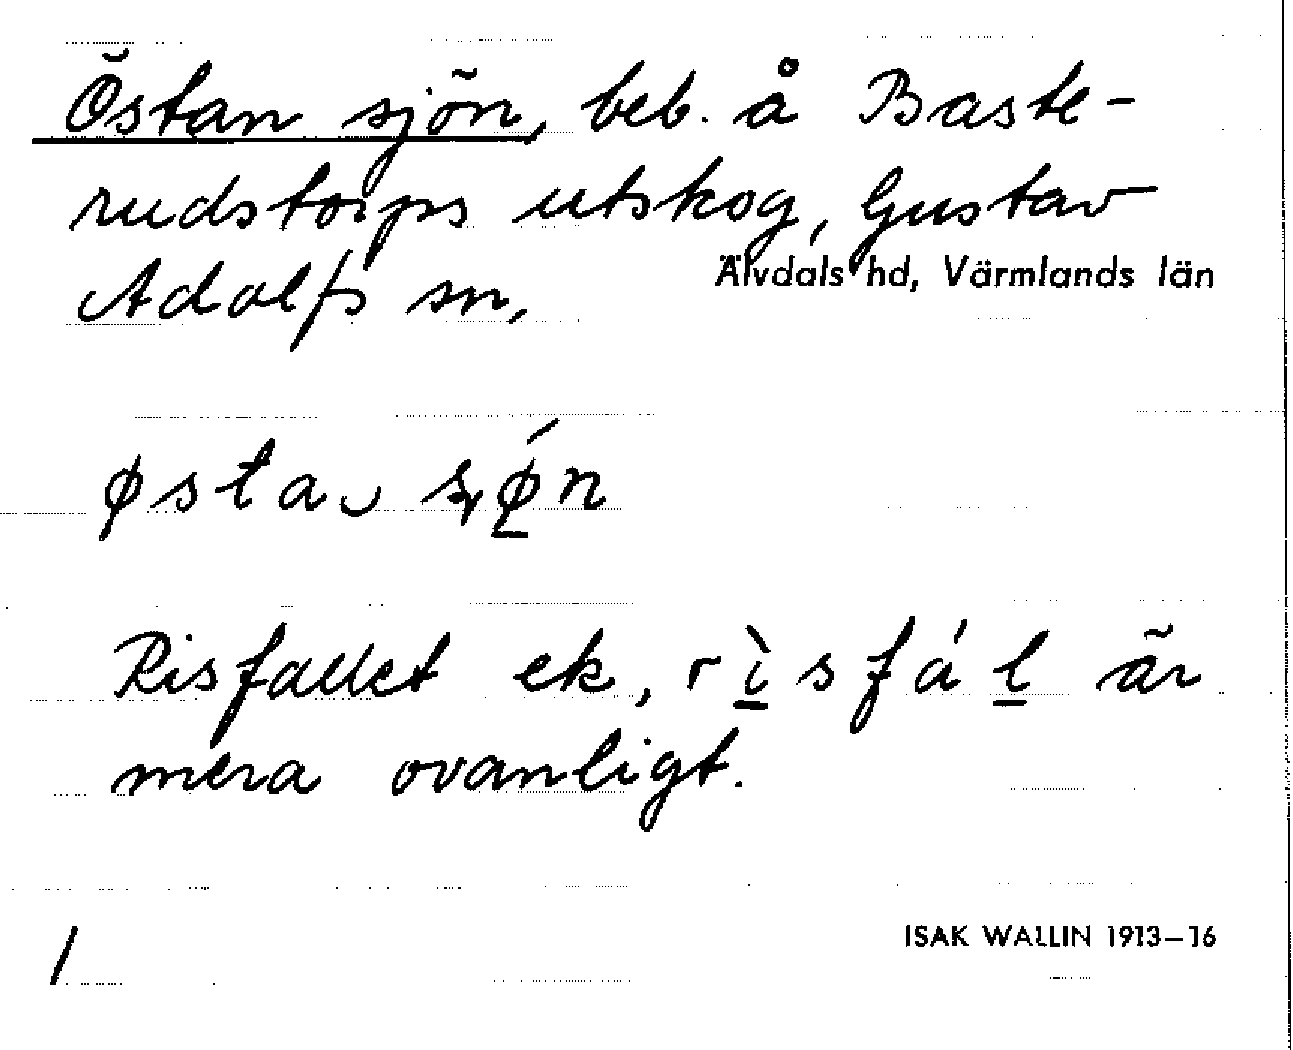 Östan sjön, beb. å Baste-
rudstorps utskog, Gustav
Adolfs sn, Älvdals hd, Värmlands län
Risfallet ek, rìsfál är
mera ovanligt.
/
ISAK WALLIN 1913–16